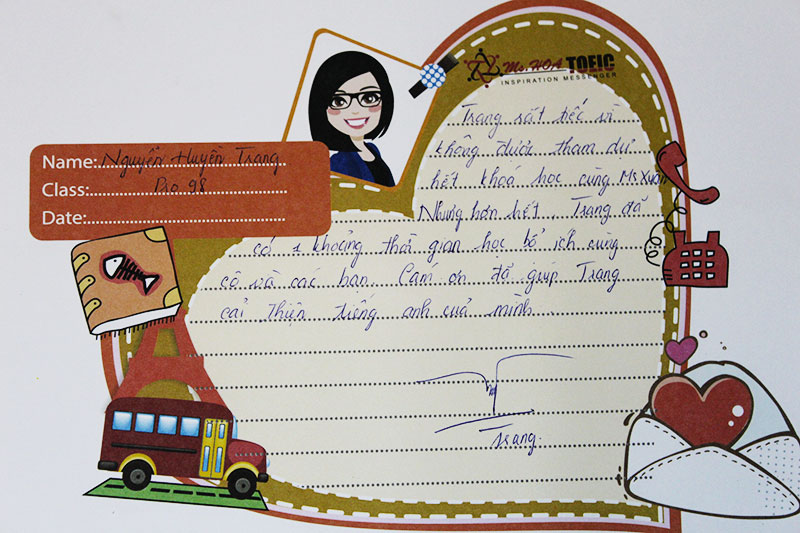 Ms. HOA TOEIC
INSPIRATION MESSENGER
Name: Nguyễn Huyền Trang
Class: Pro 98
Date:
Trang rất tiếc vì
không được tham dự
hết khoá học cùng Ms Xuân
Nhưng hơn hết, Trang đã
có 1 khoảng thời gian học bổ ích cùng
cô và các bạn. Cảm ơn đã giúp Trang
cải thiện tiếng anh của mình.
Trang.